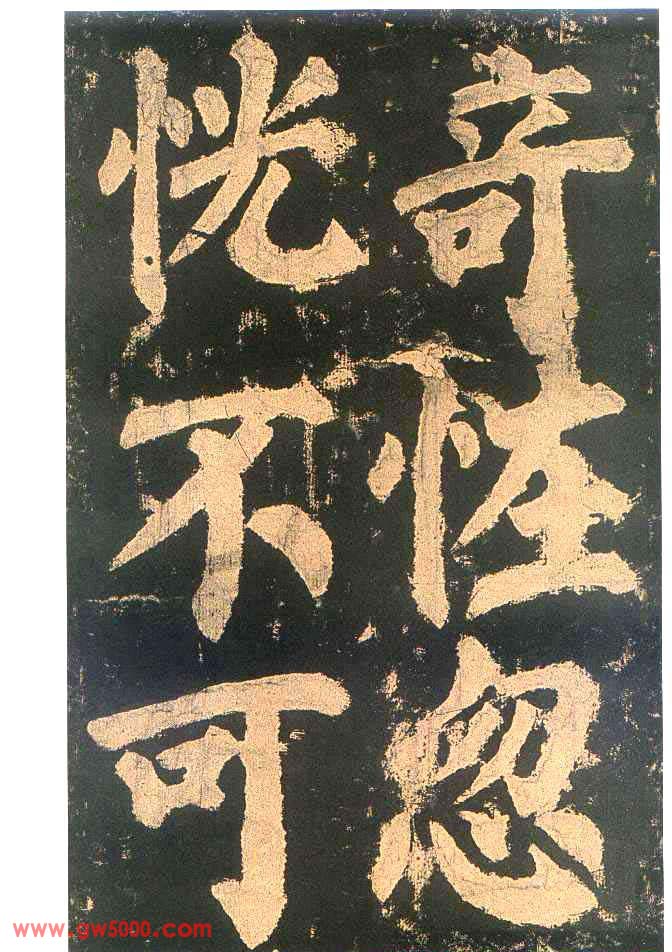 竒恠忽
恍不可
www.gw5000.com